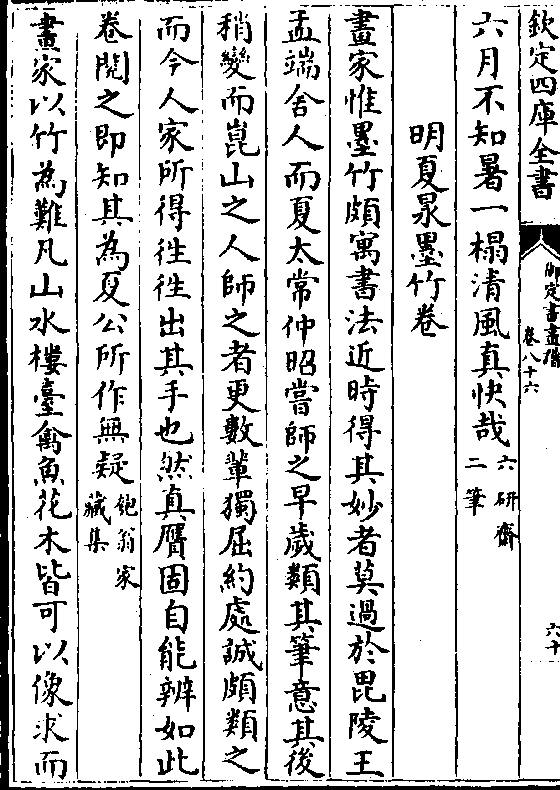 欽定四庫全書
御定書畫譜
卷八十六
六十
六月不知暑一榻清風真快哉六研齋
二筆
明夏㫤墨竹卷
畫家惟墨竹頗寓書法近時得其妙者莫過於毘陵王
孟端舍人而夏太常仲昭嘗師之早歲類其筆意其後
稍變而崑山之人師之者更數輩獨屈約處誠頗類之
而今人家所得徃徃出其手也然真贋固自能辨如此
卷閱之即知其為夏公所作無疑鮑翁家
藏集
畫家以竹為難凡山水樓臺禽魚花木皆可以像求而